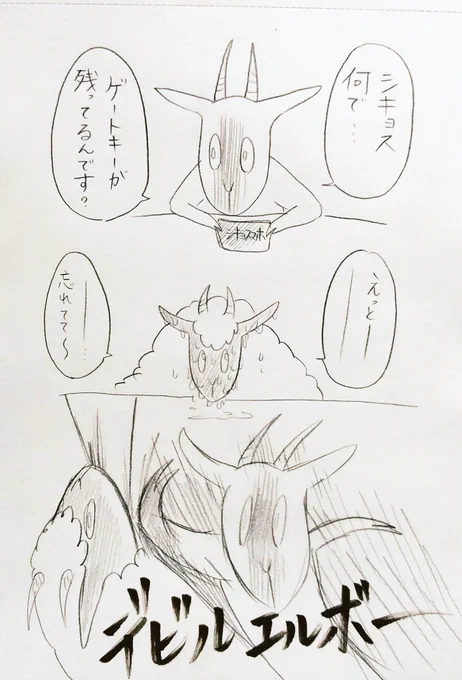 シキョス
何で…
ゲートキーが
残ってるんです？
シキョスホ
えっとー
――
――…
忘れてて〜
デビルエルボー